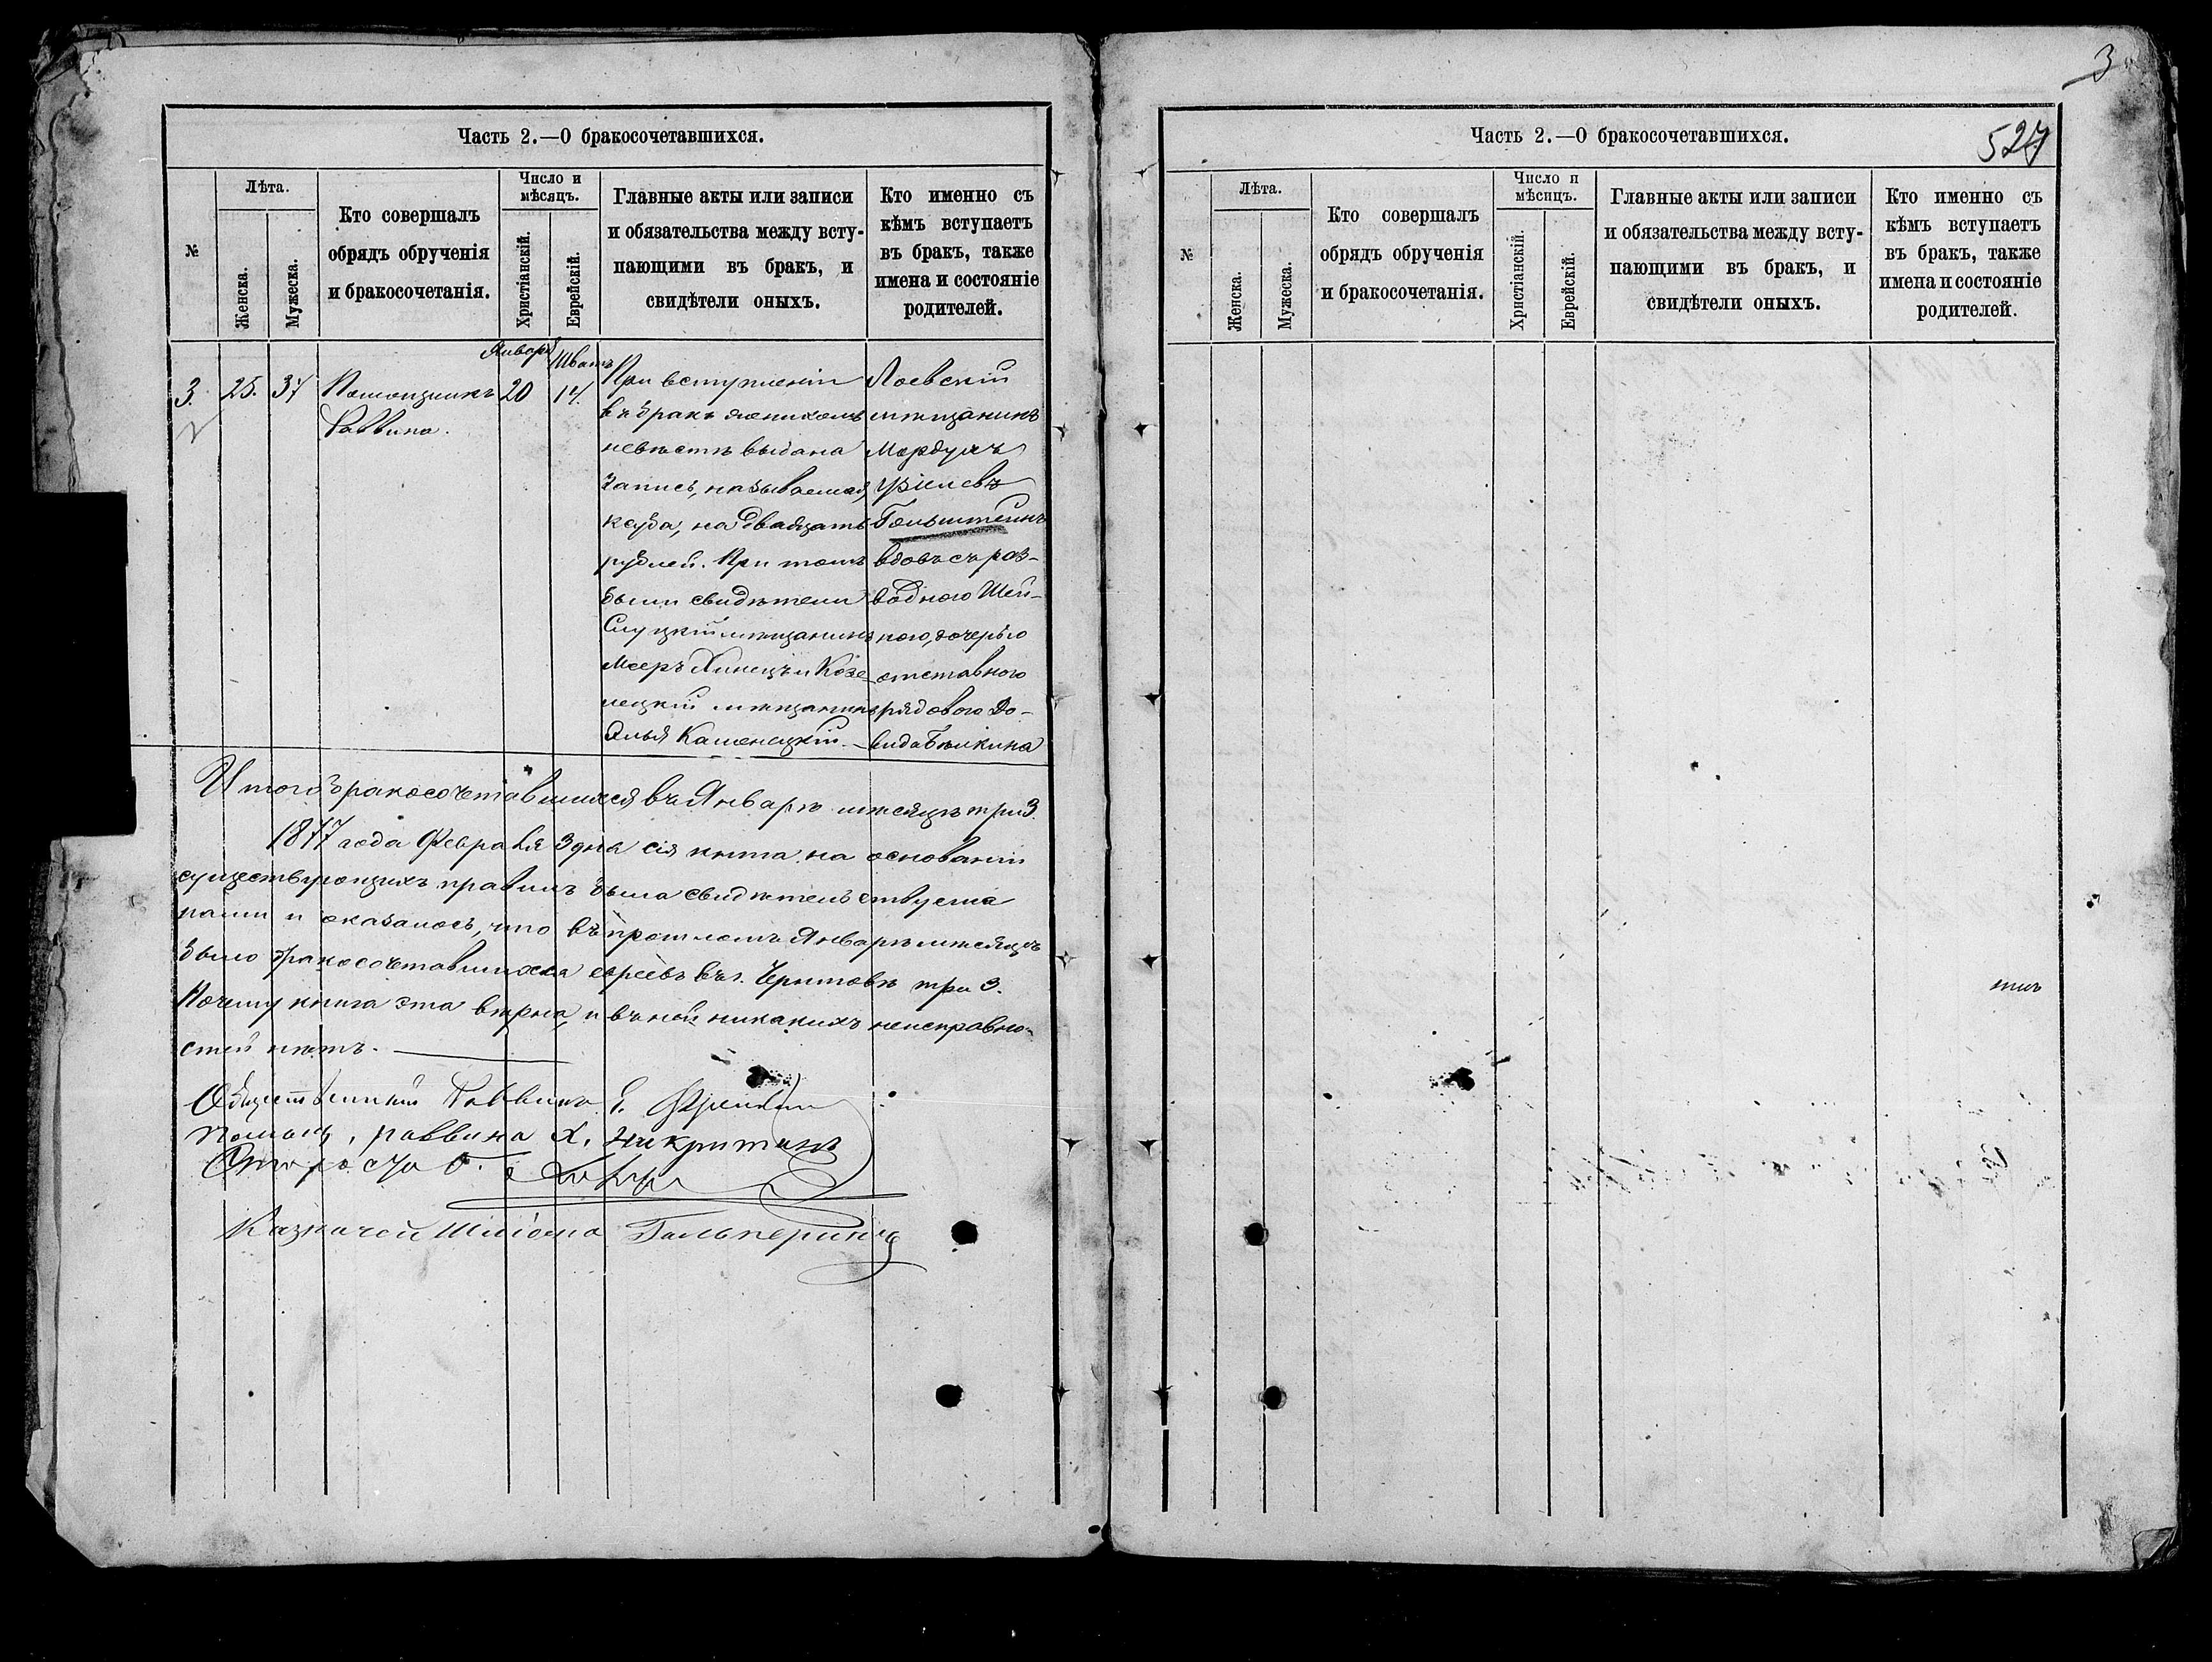 3
Часть 2.—О бракосочетавшихся.
№
Лѣта.
Женска.
Мужеска.
Кто совершалъ
обрядъ обрученія
и бракосочетанія.
Число и
мѣсяцъ.
Христіанскій.
Еврейскій.
Главные акты или записи
и обязательства между всту-
пающими въ бракъ, и
свидѣтели оныхъ.
Кто именно съ
кѣмъ вступаетъ
въ бракъ, также
имена и состояніе
родителей.
3.
25.
37
Помощникъ
Раввина.
Январь
20
Шватъ
14.
При вступленіи
въ бракъ женихомъ
невѣстѣ выдана
запись, называемая
ксуба, на двадцать
рублей. При томъ
были свидѣтели
Слуцкій мѣщанинъ
Мееръ Хинецъ и Козе-
лецкій мѣщанинъ
Элья Каменецкій.
Лоевскій
мѣщанинъ
Мордухъ
Гольштейнъ
вдовъ съ раз-
водного Шей-
ною, дочерью
отставного
рядового До-
вида Бѣлкина
Итого бракосочетавшихся въ Январѣ мѣсяцѣ три 3.
1877 года Февраля 3 дня сія книга на основаніи
существующихъ правилъ была свидѣтельствуема
нами и оказалось, что въ прошломъ Январѣ мѣсяцѣ
было бракосочетавшихся евреевъ въ г. Черниговѣ три 3.
Почему книга эта вѣрна и въ ней никакихъ неисправно-
стей нѣтъ.
Общественный Раввинъ
Помощ. раввина Х.
Староста
Казначей Шлiома Гальперинъ
Часть 2.—О бракосочетавшихся.
527
№
Лѣта.
Женска.
Мужеска.
Кто совершалъ
обрядъ обрученія
и бракосочетанія.
Число и
мѣсяцъ.
Христіанскій.
Еврейскій.
Главные акты или записи
и обязательства между всту-
пающими въ бракъ, и
свидѣтели оныхъ.
Кто именно съ
кѣмъ вступаетъ
въ бракъ, также
имена и состояніе
родителей.